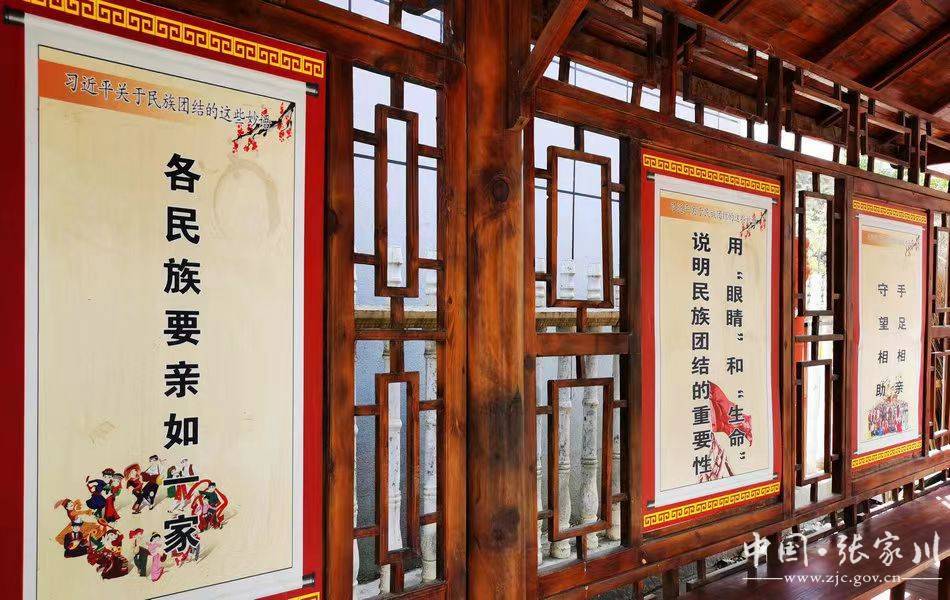 习近平关于民族团结的这些妙语
各民族要亲如一家
习近平关于民族团结的这些妙语
用“眼睛”和“生命”
说明民族团结的重要性
手足相亲
守望相助
中国·张家川
www.zjc.gov.cn